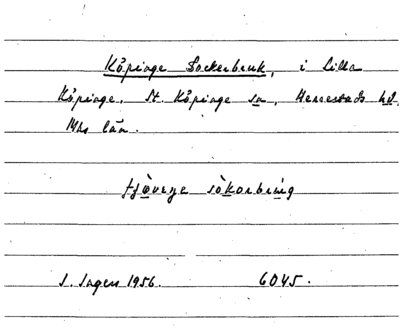 Köpinge Sockerbruk, i Lilla
Köpinge, St. Köpinge sn, Herrestads hd,
Mhs län.
sökorbrúg
S. Ingers 1956. 6045.